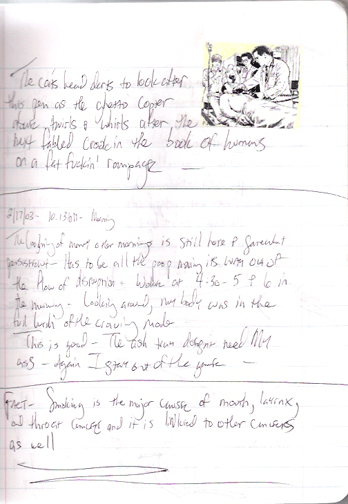 The cat's head darts to look after
this pen as the ghetto copter
above, twirls & whirls after the
next fabled crook in the book of humans
on a flat fuckin' rampage —
10:13 - Morning
The of morning is still here &
- Has to be all the poop is out of
the flow of disruption - Woke at 4:30 - 5 & 6 in
the morning - Looking around, my body was in the
of the craving mode
This is good - The team doesn't need My
ass - again I out of the game -
FACT - Smoking is the major cause of mouth, larinx,
and throat cancer and it is linked to other cancers
as well